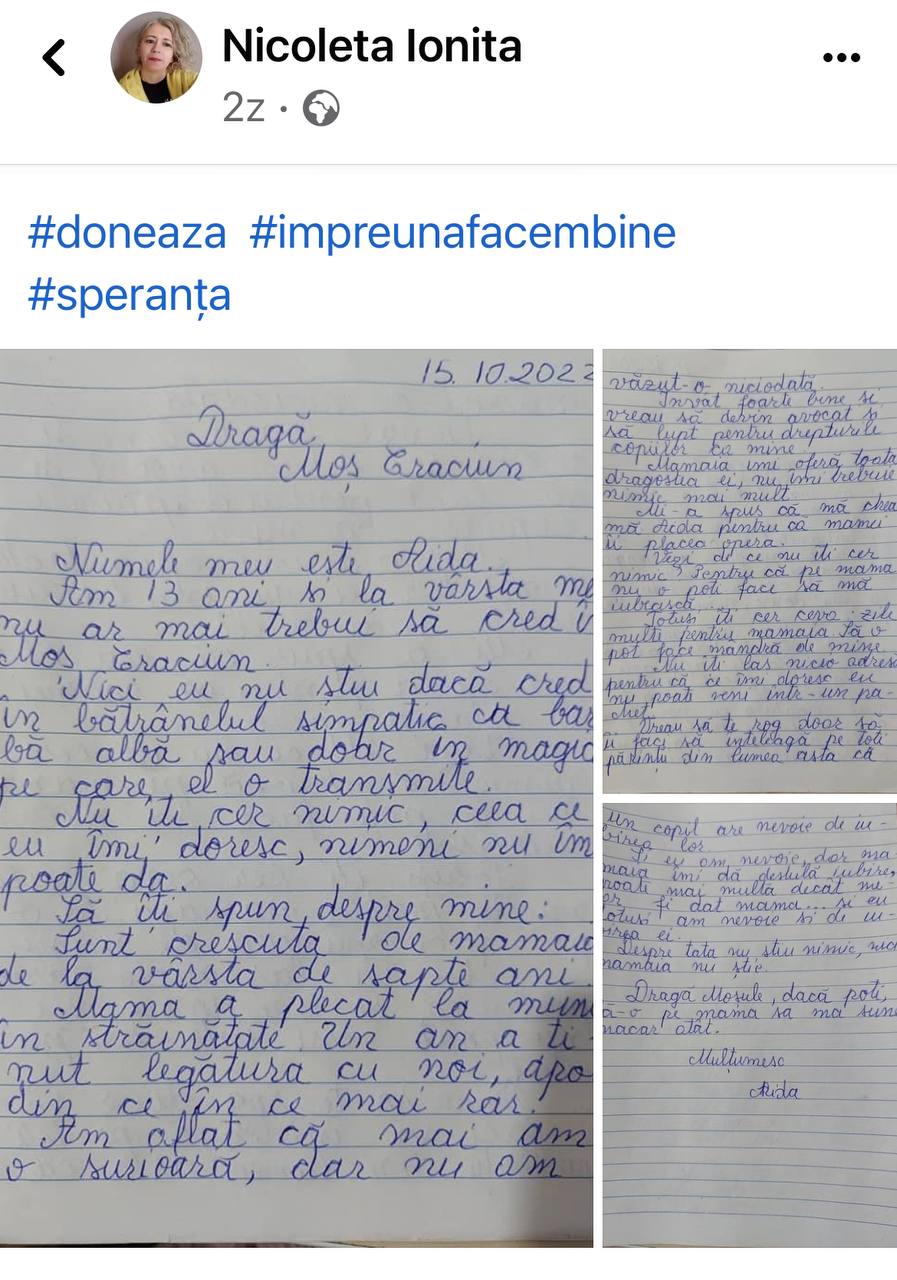 Nicoleta Ionita
2z ·
#doneaza #impreunafacembine
#speranța
15. 10.2022
Dragă
Moș Crăciun
Numele meu este Aida.
Am 13 ani și la vârsta me
nu ar mai trebui să cred î
Moș Crăciun.
Nici eu nu știu dacă cred
în bătrânelul simpatic cu bar
bă albă sau doar în magic
pe care el o transmite.
Nu îți cer nimic, ceea ce
eu îmi doresc, nimeni nu îm
poate da.
Să îți spun despre mine:
Sunt crescută de mamaia
de la vârsta de șapte ani.
Mama a plecat la mun
în străinătate. Un an a ți-
nut legătura cu noi, apo
din ce în ce mai rar.
Am aflat că mai am
o surioară, dar nu am
văzut-o niciodată.
Învăț foarte bine și
vreau să devin avocat și
să lupt pentru drepturile
copiilor ca mine.
Mamaia îmi oferă toată
dragostea ei, nu îmi trebuie
nimic mai mult.
Mi-a spus că mă chea
mă Aida pentru că mamei
îi placea opera.
Vezi de ce nu îți cer
nimic? Pentru că pe mama
nu o poți face să mă
iubească...
Totuși îți cer ceva: zile
multe pentru mamaia să o
pot face mândră de mine.
Nu îți las nicio adres
pentru că ce îmi doresc eu
nu poate veni într-un pa-
chet.
Vreau să te rog doar să
îi faci să înțeleagă pe toți
părinții din lumea asta că
un copil are nevoie de iu-
birea lor.
Și eu am nevoie, dar ma
maia îmi dă destulă iubire,
poate mai multă decât mi-
ar fi dat mama... și eu
totuși am nevoie și de iu-
birea ei.
Despre tata nu știu nimic, nici
mamaia nu știe.
Dragă Moșule, dacă poți,
ă-o pe mama să mă sune
măcar atât.
Mulțumesc
Aida